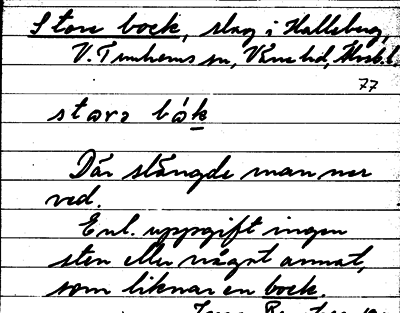 Stora bock, slag i Hallsberg,
V. Tunhems sn, Väne hd, Älvsb. l.
77
stora båk
Där slängde man ner
ved.
Enl. uppgift ingen
sten eller något annat,
som liknar en bock.